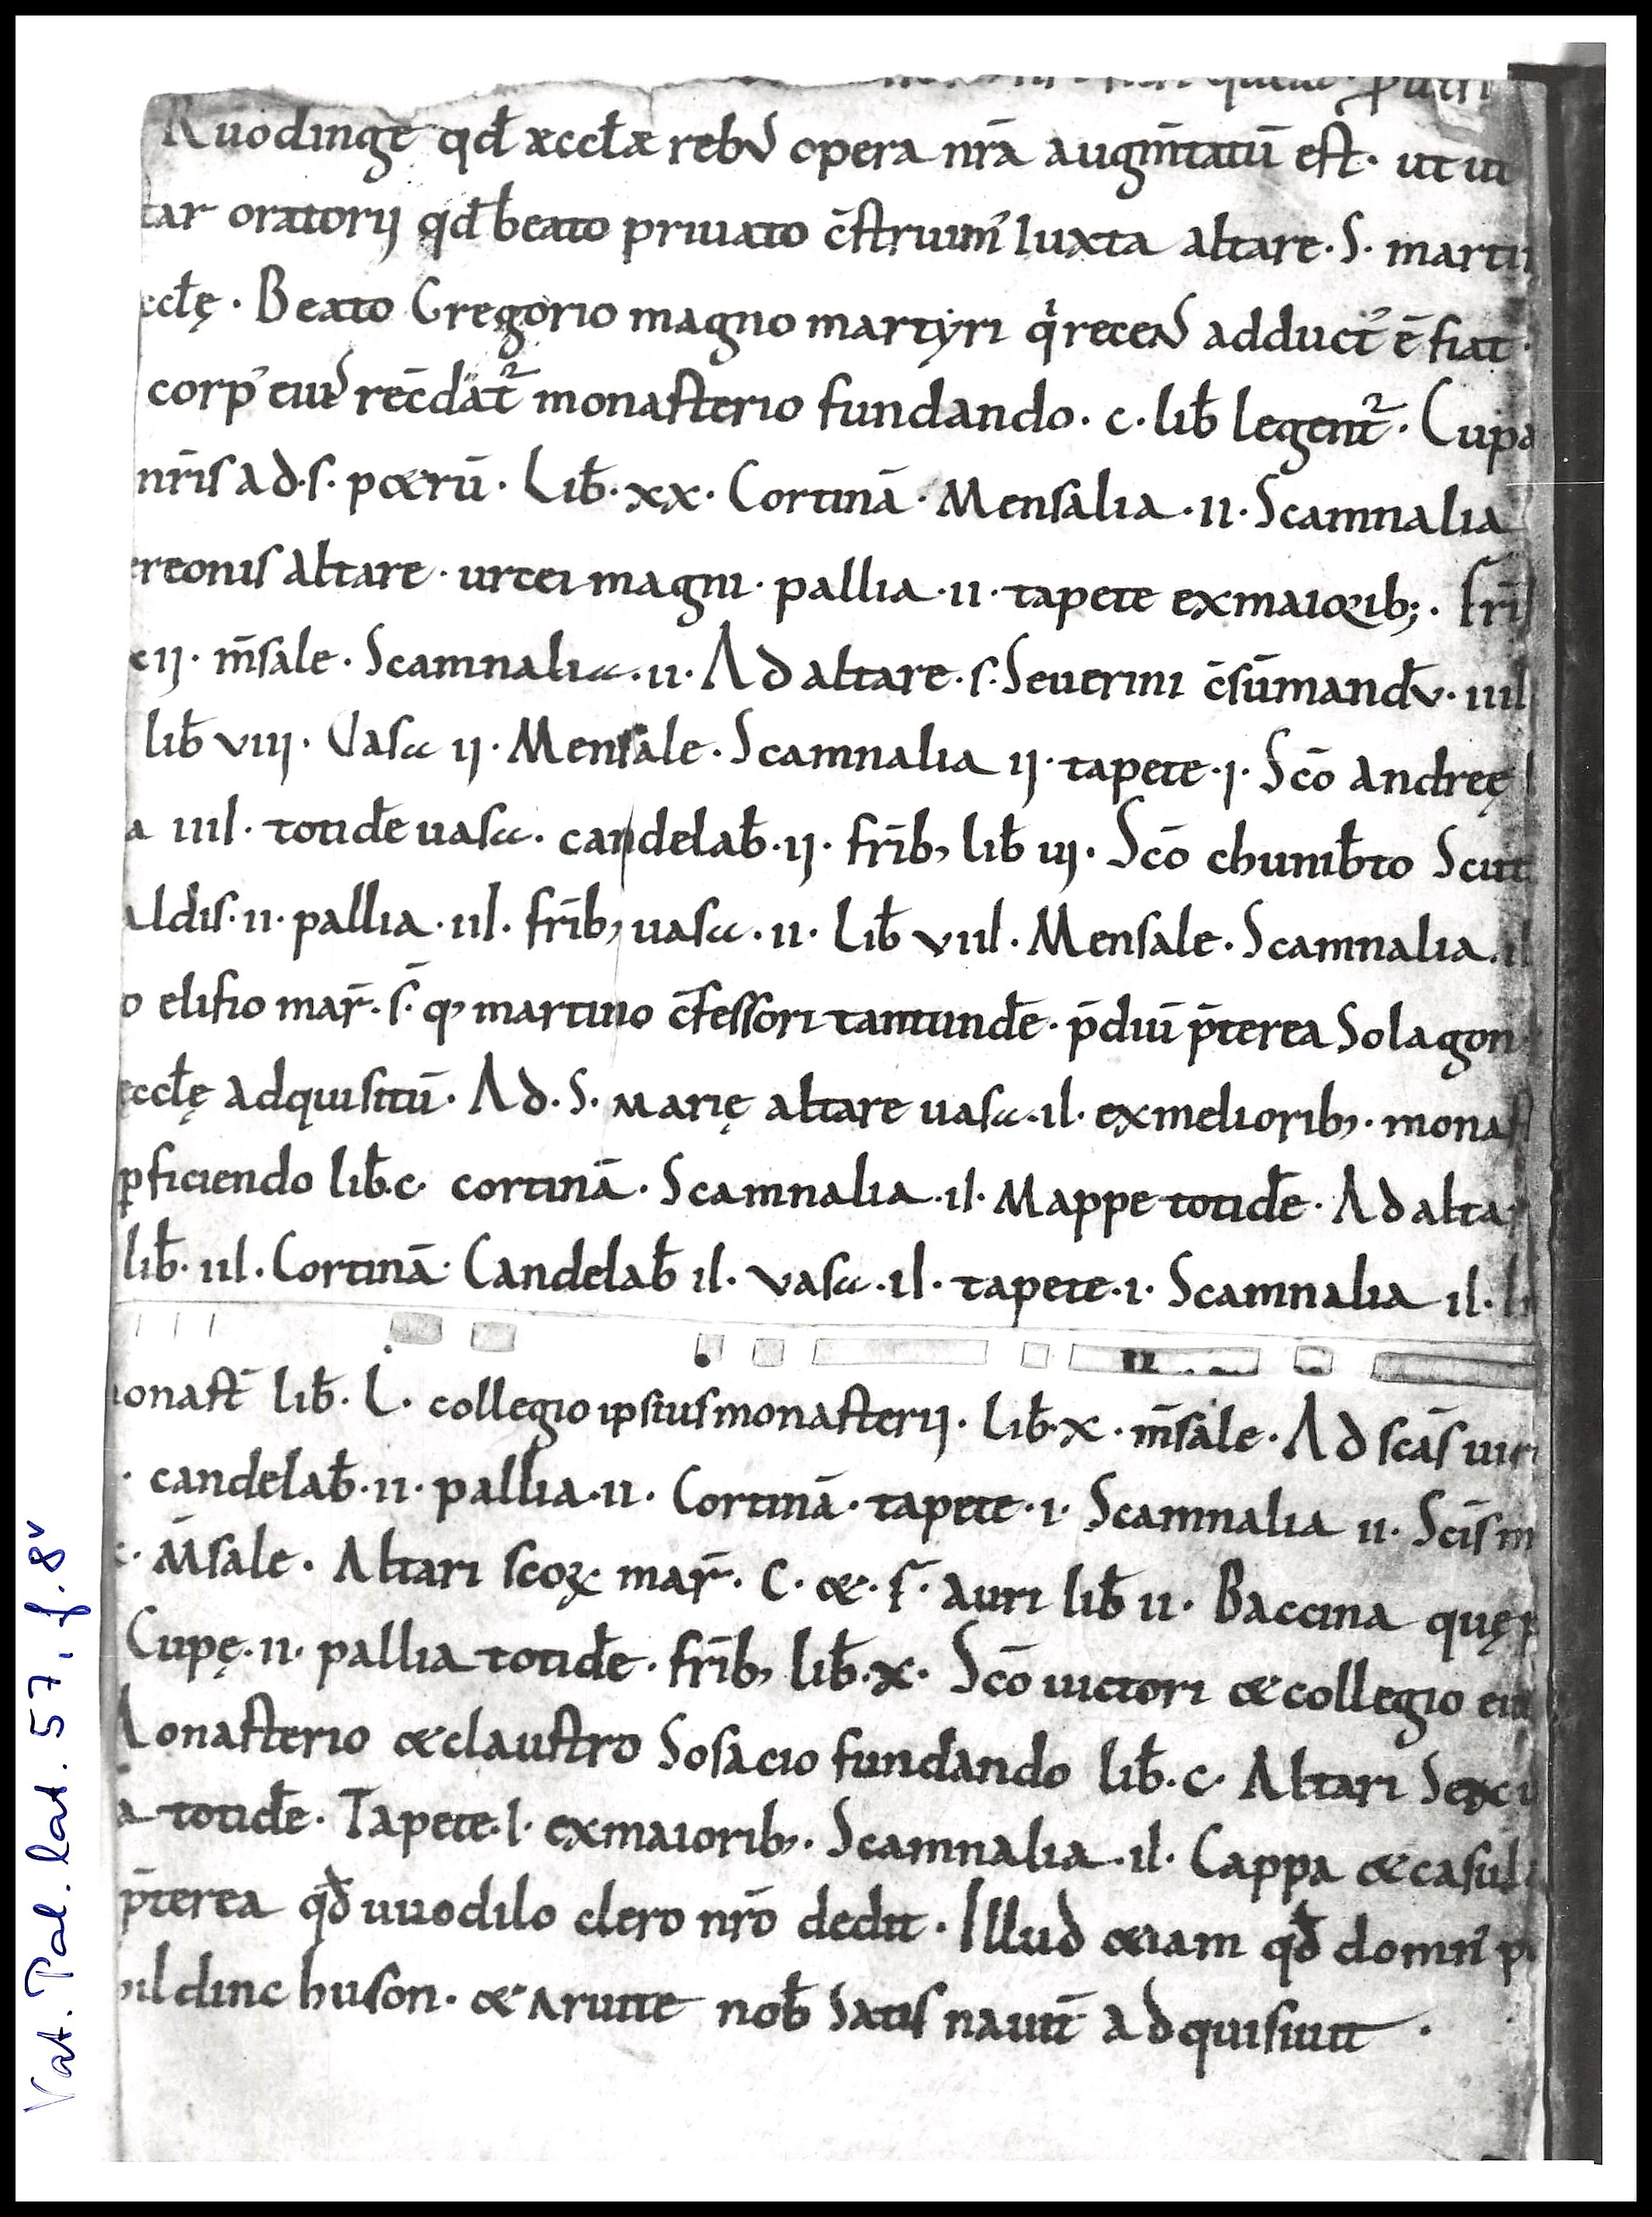 Ruodinge qđ æccłæ rebus opera nr̄a augm̄tatū est· ut ut
tar oratorij qđ beato priuato c̄struim' Iuxta altare· S· marti
ccłę· Beato Gregorio magno martyri qͥ recens adduct' ē fiat·
corp' eius rec̄dat᷑ monasterio fundando· c· lib̄ legent᷑· Cupa
nr̄is ad·s· petrū· Lib̄·xx· Cortinā· Mensalia·ii· Scamnalia
ereonis altare· urcei magni· pallia·ii· tapete exmaiorib;· fr̄ib
ij· m̄sale· Scamnalia·ii· Ad altare·s· Seuerini c̄sūmandv̄· iiiI
lib̄ viij· Vasa ij· Mensale· Scamnalia ij· tapete·j· Scō andreę
a iiiI· totidē uasa· candelab̄·ij· fr̄ib, lib̄ iij· Scō chunib̄to Scut
aldis·ii· pallia·iiI· fr̄ib, uasa·ii· Lib̄ viiI· Mensale· Scamnalia·iI
o elifio mar̄·s̄·q, martino c̄fessori tantundē· p̄diū p̄terea Solagon
eccłę adquisitū· Ad·S· Marię altare uasa·iI· exmeliorib,· monast
ꝑficiendo lib̄·c· cortinā· Scamnalia·iI· Mappe totidē· Ad altar
lib̄·iiI· Cortinā· Candelab̄ iI· vasa·iI· tapete·i· Scamnalia iI·
onast̄ lib̄· L· collegio ipsius monasterij· Lib̄·x· m̄sale· Ad scās uir
· candelab̄·ii· pallia·ii· Cortinā· tapete·i· Scamnalia ii· Scīs m
· M̄sale· Altari scoꝝ mar̄· C· &·f̄· auri lib̄ ii· Baccina quę
Cupę·ii· pallia totidē· fr̄ib, lib̄·x· Scō uictori & collegio eius
Monasterio & claustro Sosacio fundando lib̄·c· Altari
a totidē· Tapete·I· exmaiorib,· Scamnalia·iI· Cappa & casula
p̄terea qđ uuodilo clero nr̄o dedit· Illud &iam qđ domn'
ildinc huson· & aruite nob̄ satis nauit̄ adquisiuit·
Vat. Pal. lat. 57, f. 8v